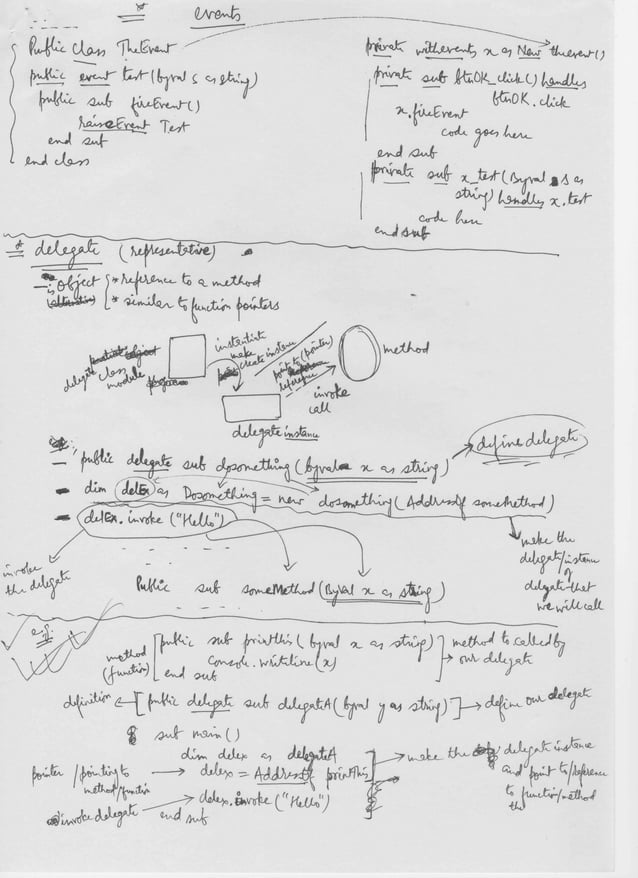 * events
Public Class TheEvent
public event test (byval s as string)
public sub fireEvent()
raiseEvent Test
end sub
end class
private withevents x as New theevent()
private sub btnOK_click() handles
btnOK.click
x.fireEvent
code goes here
end sub
private sub x_test (Byval s as
string) handles x.test
code here
end sub
* delegate (representative)
is Object * reference to a method
* similar to function pointers
instantiate
make
create instance
delegate class
module
point to (pointer)
reference
method
invoke
call
delegate instance
- public delegate sub dosomething (byval x as string)
define delegate
- dim delEx as Dosomething = new dosomething (AddressOf someMethod)
- delEx.invoke ("Hello")
invoke
the delegate
make the
delegate/instance
of
delegate that
we will call
Public sub someMethod (Byval x as string)
e.g.
method
(function)
public sub printthis (byval x as string)
Console.writeline(x)
end sub
method to called by
our delegate
definition
public delegate sub delegateA (byval y as string)
define our delegate
sub main()
dim delex as delegateA
pointer / pointing to
method/function
delex = AddressOf printThis
make the delegate instance
and point to/reference
to function/method
the
invoke delegate
delex.invoke ("Hello")
end sub